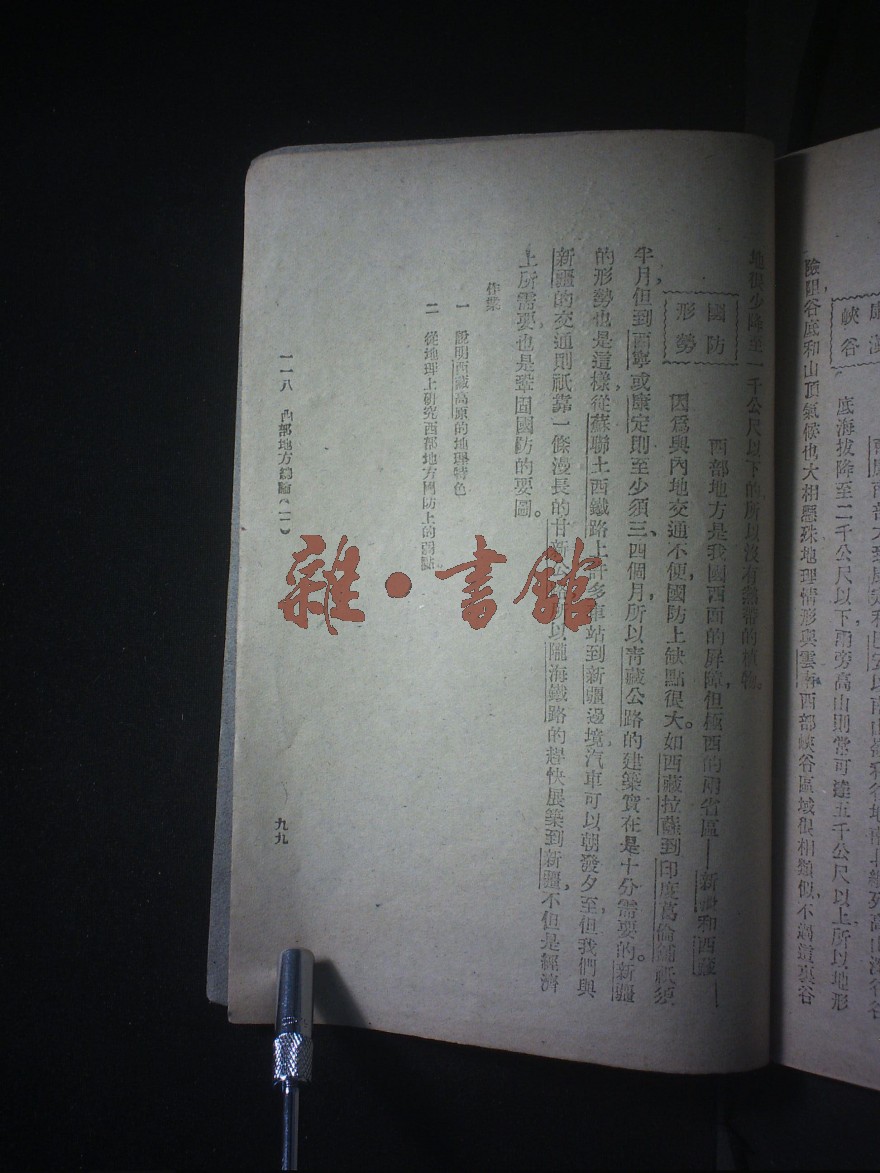 底海拔降至二千公尺以下，兩旁高山則常可達五千公尺以上，所以地形
險阻，谷底和山頂氣候也大相懸殊，地理情形與雲南西部峽谷區域很相類似，不過這裏谷
峽谷
地很少降至一千公尺以下的，所以沒有熱帶的植物。
國防形勢
西部地方是我國西面的屏障，但極西的兩省區——新疆和西藏——
因爲與內地交通不便，國防上缺點很大。如西藏拉薩到印度葛倫鋪祇須
半月，但到西寧或康定則至少須三、四個月，所以青藏公路的建築實在是十分需要的。新疆
的形勢也是這樣，從蘇聯土西鐵路上許多車站到新疆邊境，汽車可以朝發夕至，但我們與
新疆的交通則祇靠一條漫長的甘新公路，所以隴海鐵路的趕快展築到新疆，不但是經濟
上所需要，也是鞏固國防的要圖。
作業
一　說明西藏高原的地理特色。
二　從地理上研究西部地方國防上的弱點。
一一八　西部地方總論（二）
九九
雜·書館